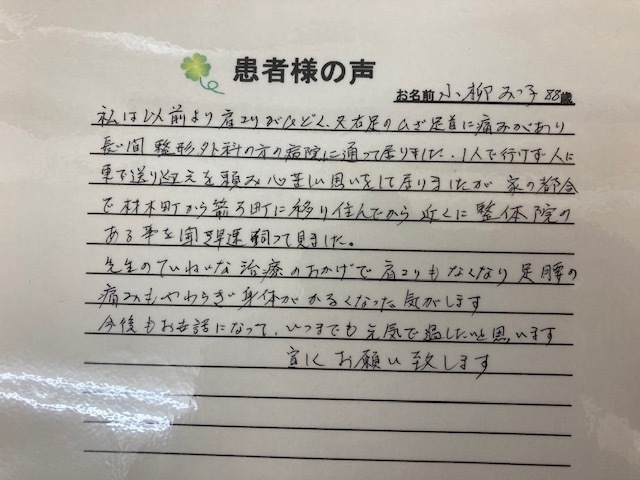 患者様の声
お名前 小柳みつ子 88歳
私は以前より肩こりがひどく、又右足のひざ足首に痛みがあり
長い間整形外科の方の病院に通って居りました。1人で行けず人に
車で送り迎えを頼み心苦しい思いをして居りましたが 家の都合
で材木町から箭弓町に移り住んでから近くに整体院の
ある事を聞き早速伺って見ました。
先生のていねいな治療のおかげで肩こりもなくなり足腰の
痛みもやわらぎ身体がかるくなった気がします
今後もお世話になって、いつまでも元気で過したいと思います
宜しくお願い致します